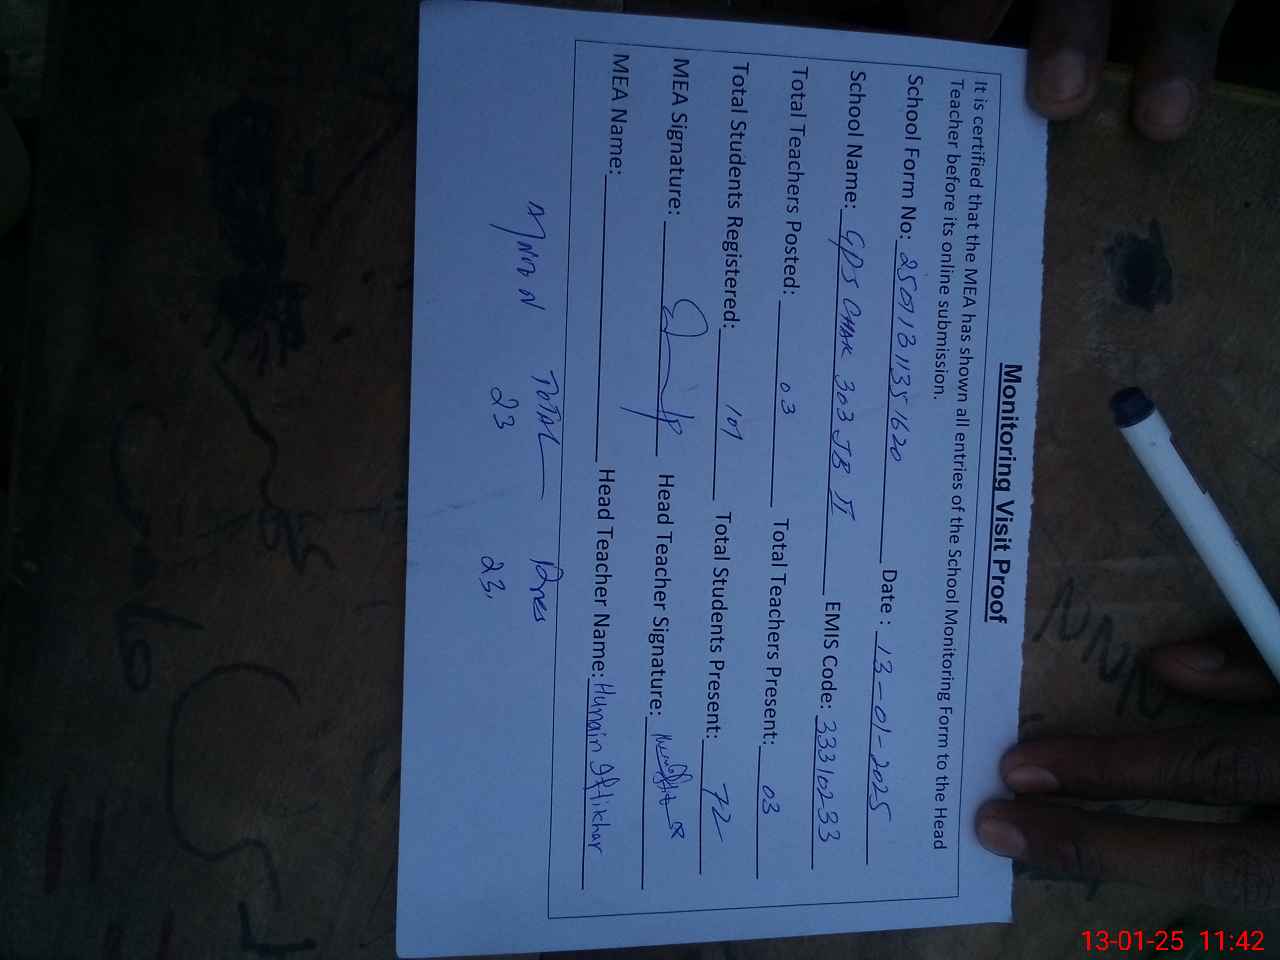 Monitoring Visit Proof
It is certified that the MEA has shown all entries of the School Monitoring Form to the Head
Teacher before its online submission.
School Form No: 25011311351620 Date : 13-01-2025
School Name: GPS CHAK 303 JB II EMIS Code: 33310233
Total Teachers Posted: 03 Total Teachers Present: 03
Total Students Registered: 101 Total Students Present: 72
MEA Signature: Head Teacher Signature:
MEA Name: Head Teacher Name: Humain Iftikhar
TOTAL Pres
23 23
13-01-25 11:42